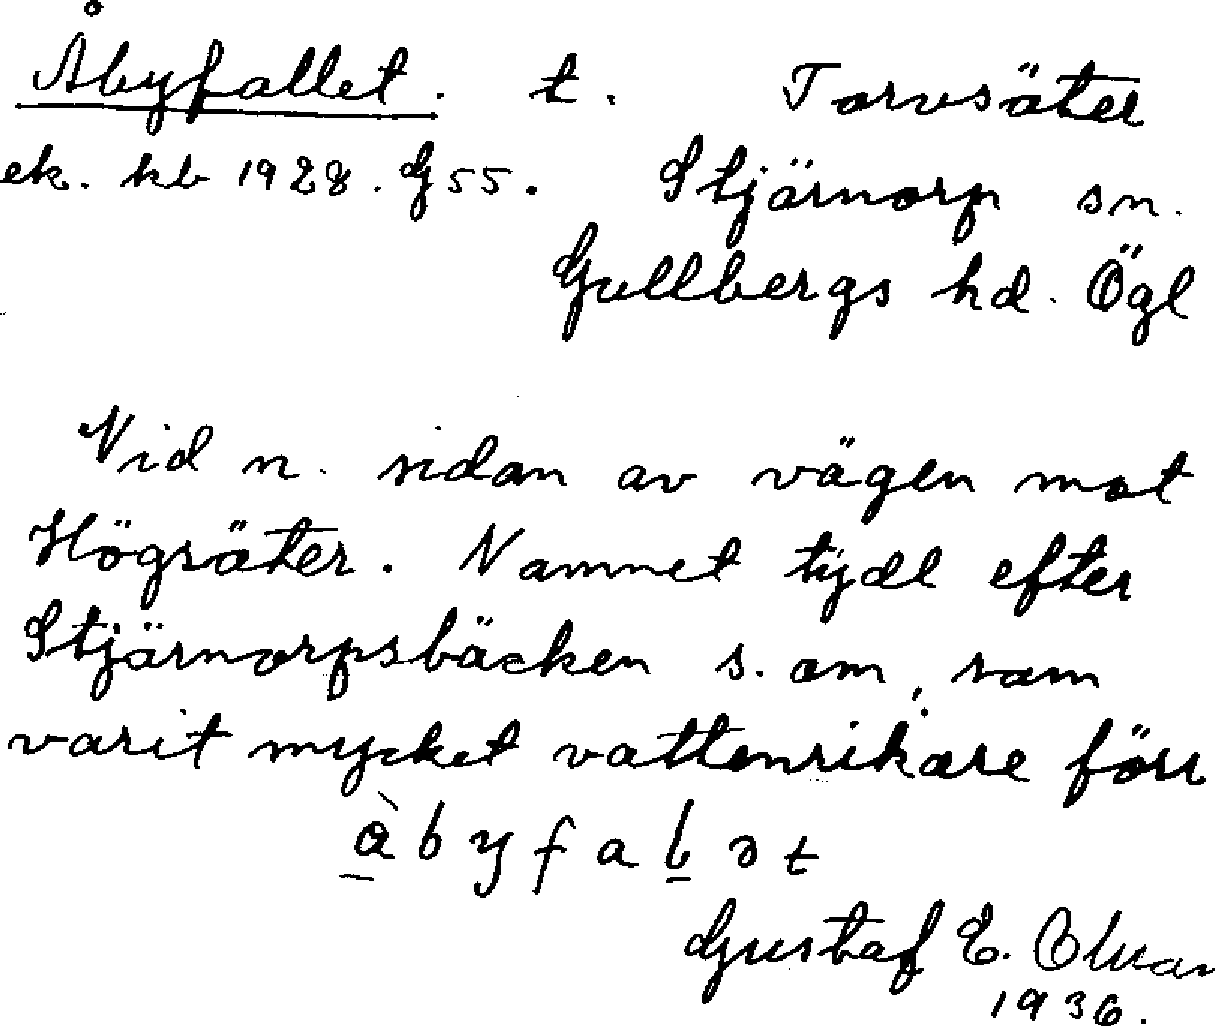 Åbyfallet. t. Torvsäter
ek. kb 1928. G 55. Stjärnorp sn.
Gullbergs hd. Ögl
Vid n. sidan av vägen mot
Högsäter. Namnet tydl efter
Stjärnorpsbäcken s. om, som
varit mycket vattenrikare förr
Gustaf E.
1936.